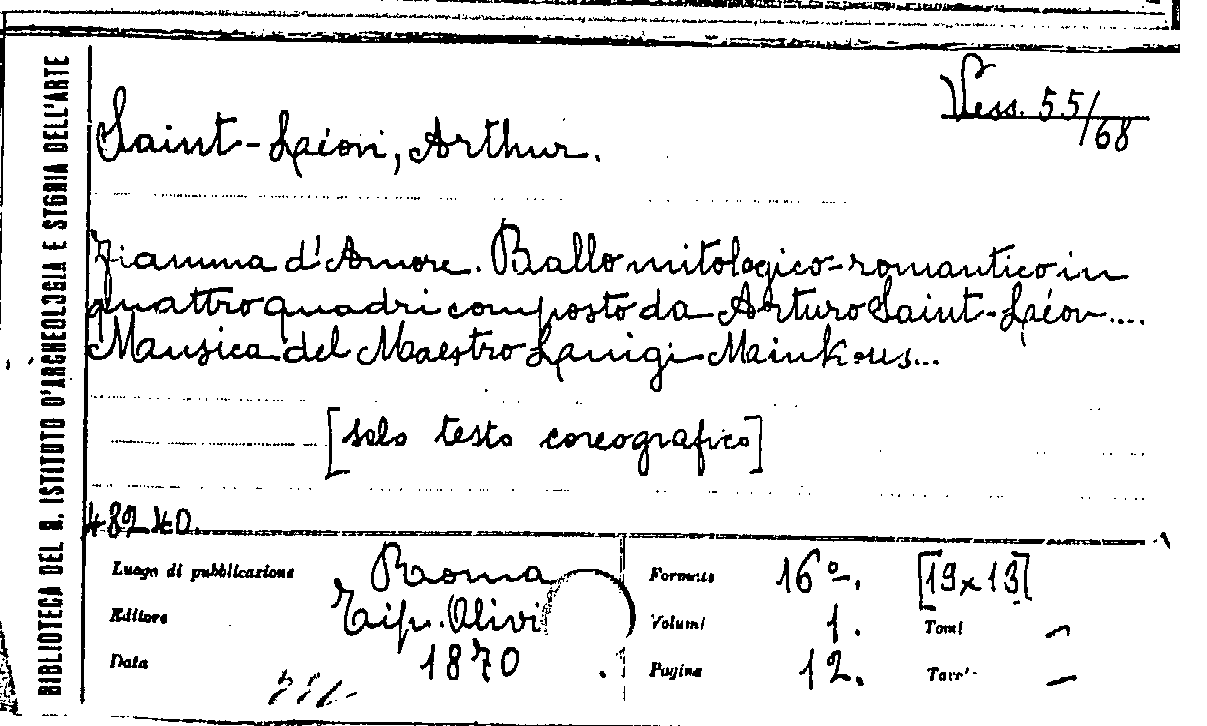 BIBLIOTECA DEL R. ISTITUTO D'ARCHEOLOGIA E STORIA DELL'ARTE
Vess. 55/68
Saint-Léon, Arthur.
Fiamma d'Amore. Ballo mitologico-romantico in
quattro quadri composto da Arturo Saint-Léon....
Musica del Maestro Luigi Minkous...
[solo testo coreografico]
48240.
Luogo di pubblicazione Roma
Editore Tip. Olivi
Data 1870
Formato 16º. [19x13]
Volumi 1. Tomi –
Pagine 12. Tav. –